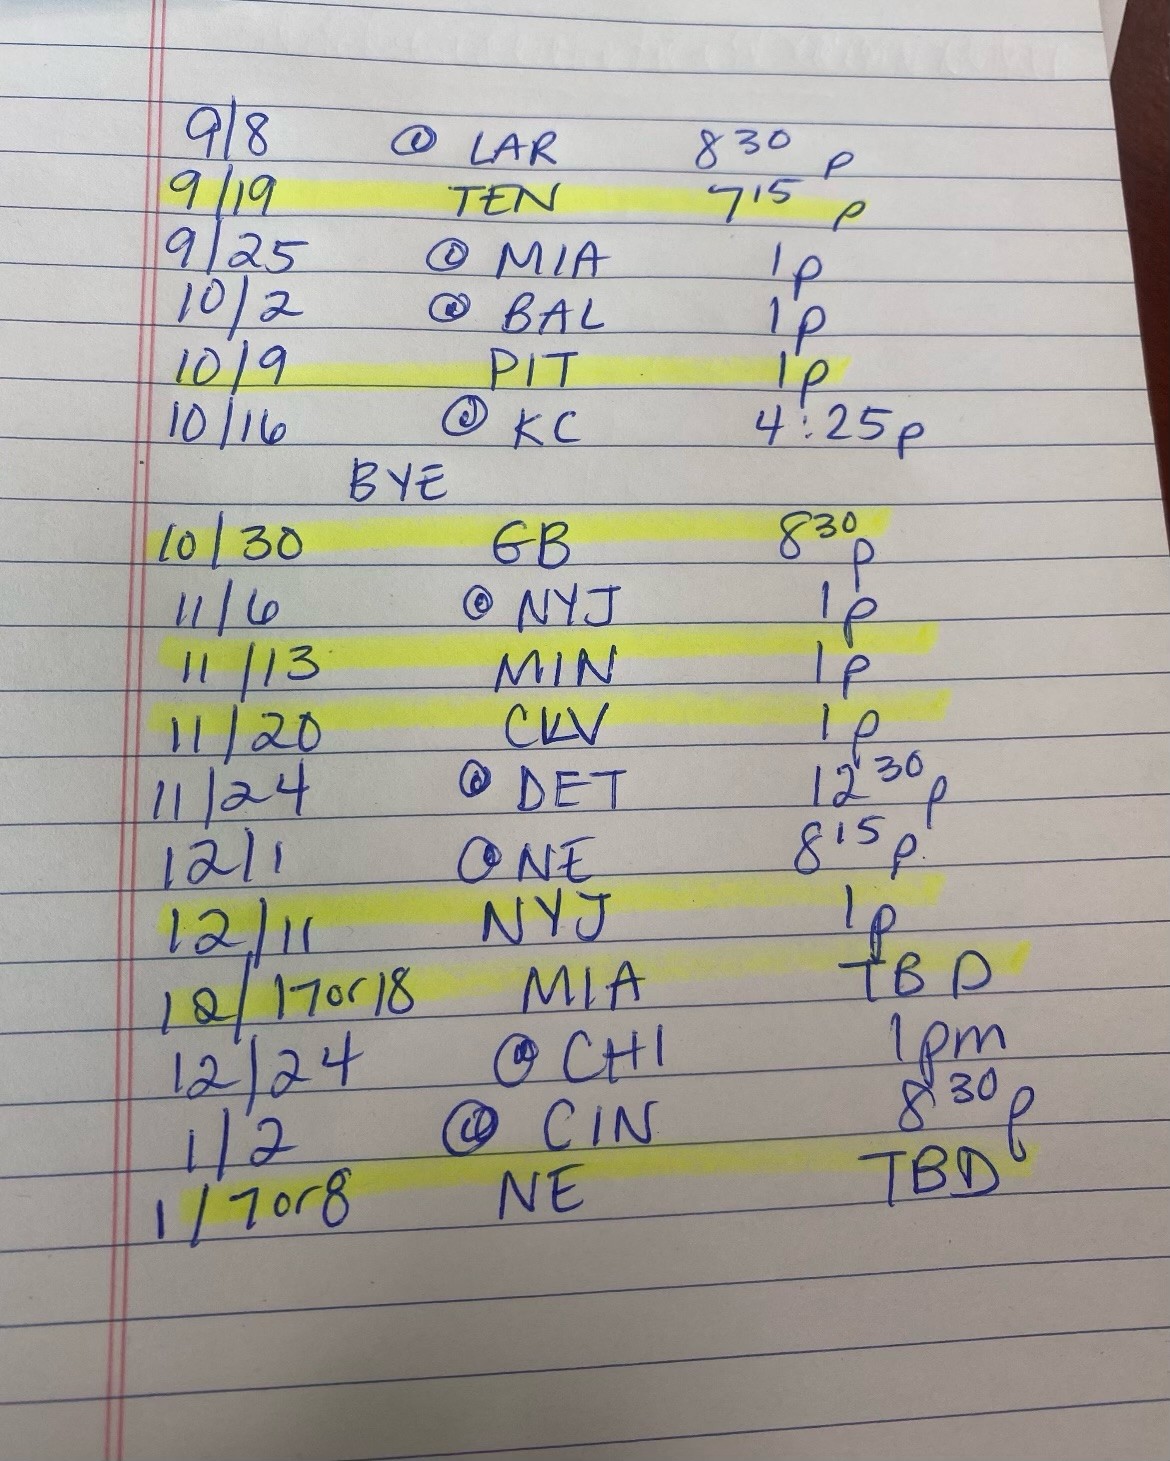 9/8 @ LAR 8 30 p
9/19 TEN 7 15 p
9/25 @ MIA 1p
10/2 @ BAL 1p
10/9 PIT 1p
10/16 @ KC 4:25p
BYE
10/30 GB 8 30 p
11/6 @ NYJ 1p
11/13 MIN 1p
11/20 CLV 1p
11/24 @ DET 12 30 p
12/1 @ NE 8 15 p
12/11 NYJ 1p
12/17 or 18 MIA TBD
12/24 @ CHI 1pm
1/2 @ CIN 8 30 p
1/7 or 8 NE TBD